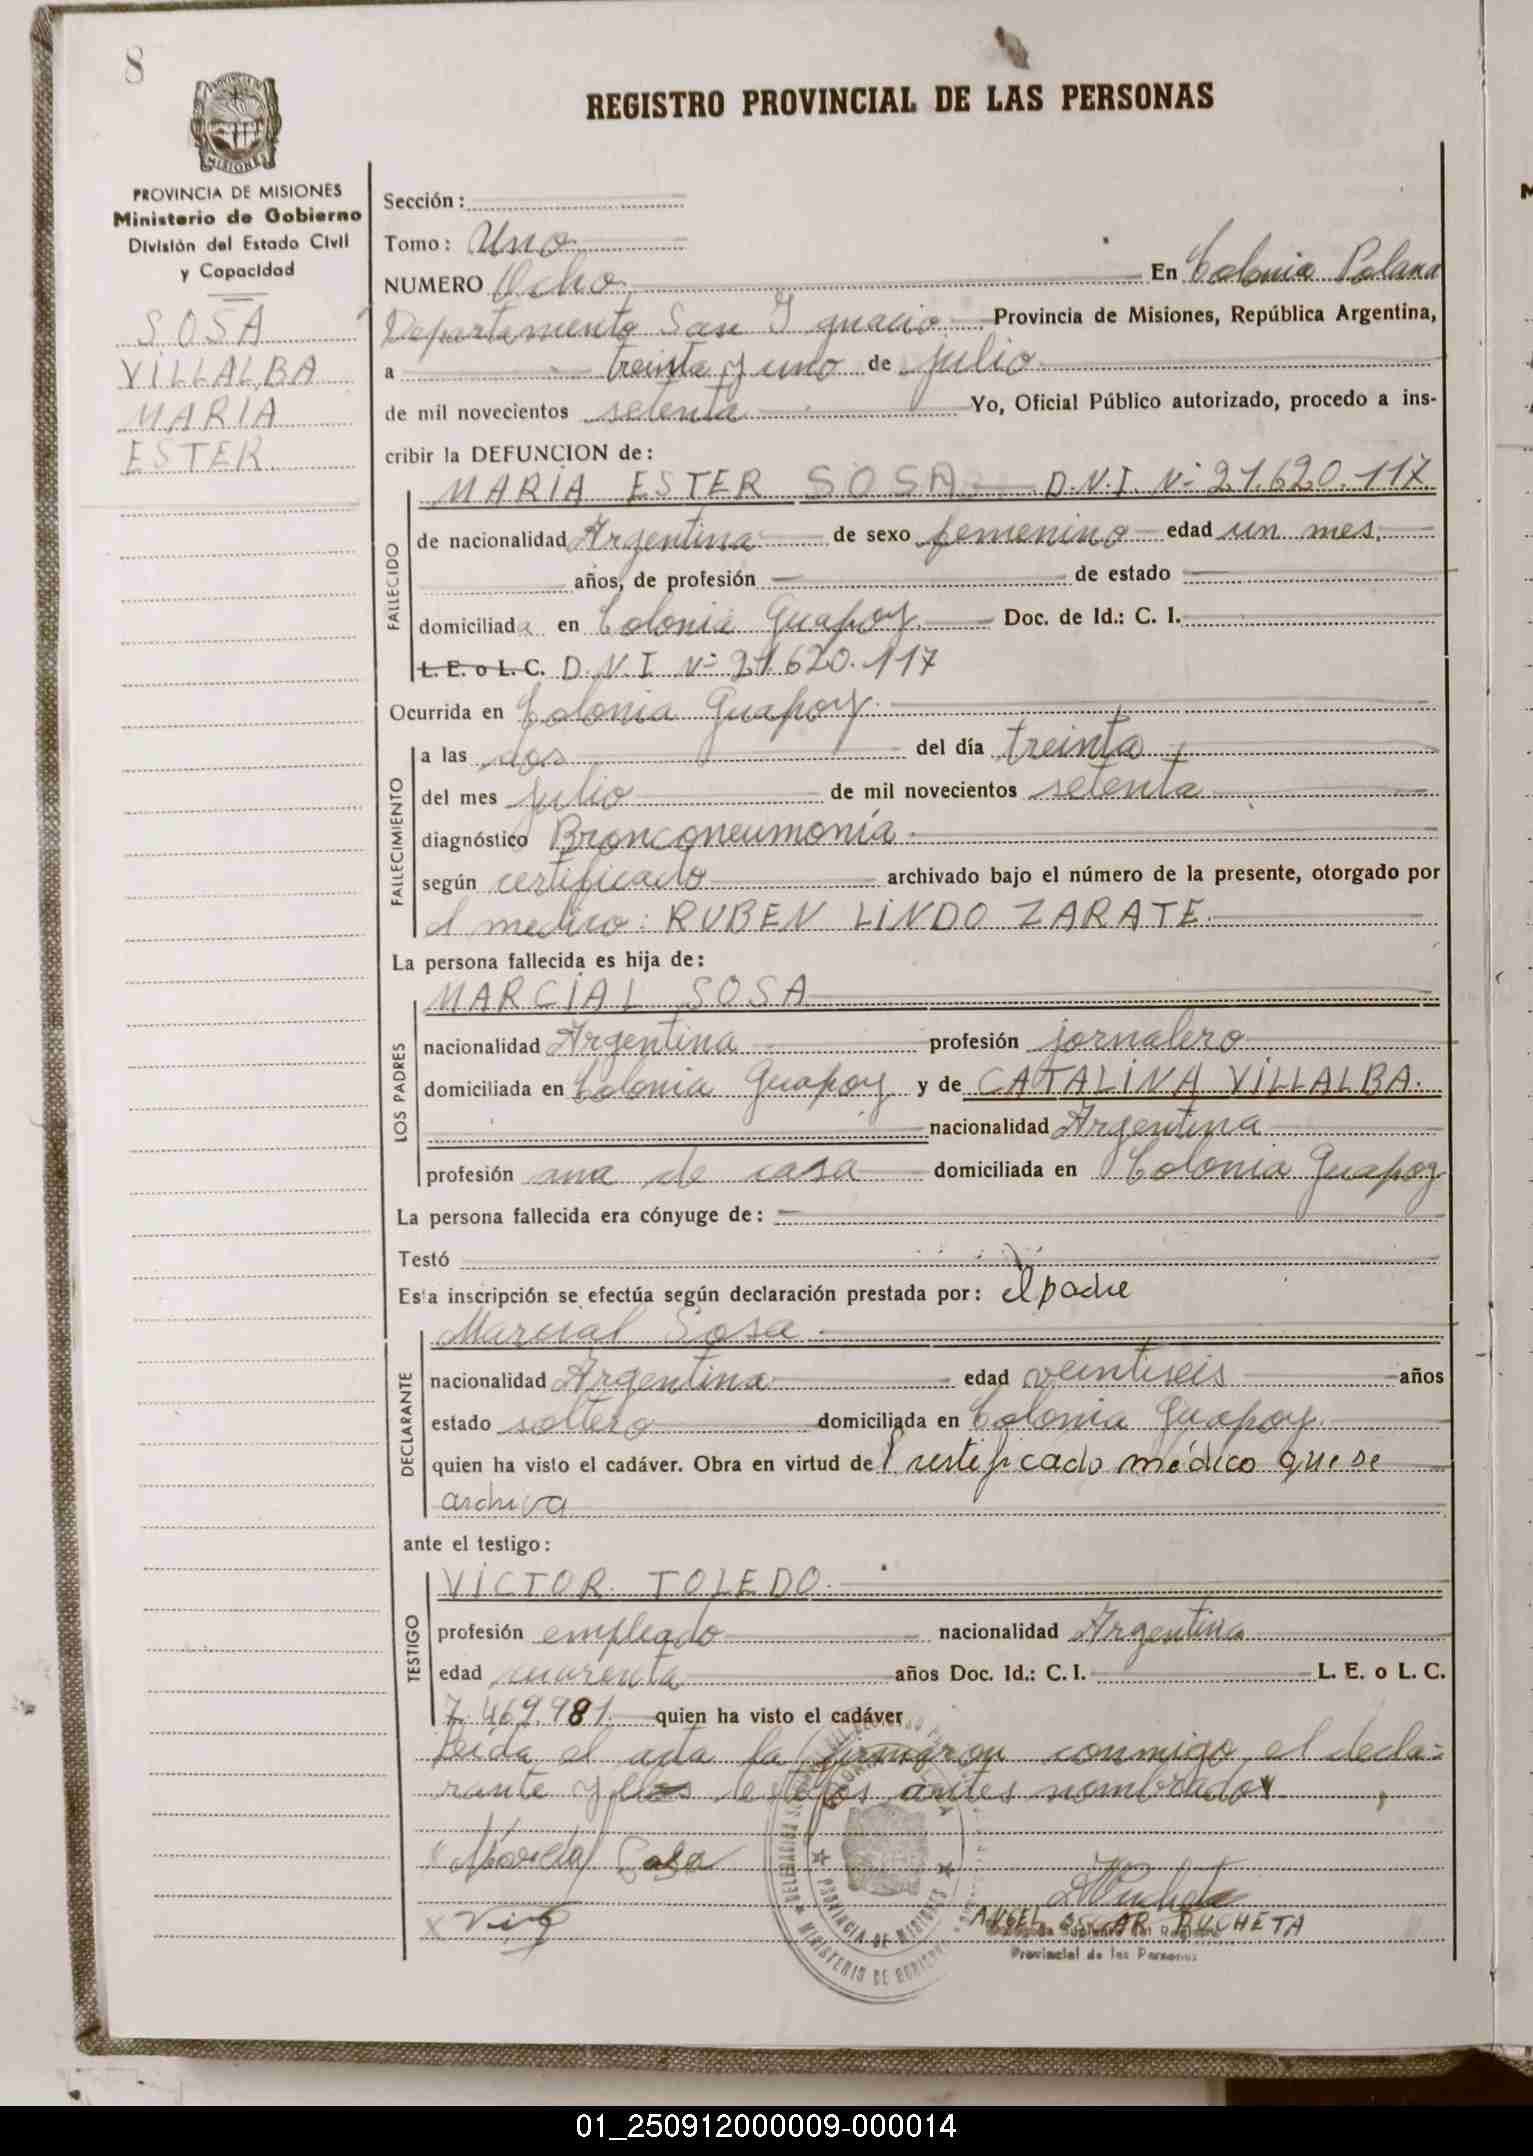 8
REGISTRO PROVINCIAL DE LAS PERSONAS
MISIONES
PROVINCIA DE MISIONES
Ministerio de Gobierno
División del Estado Civil
y Capacidad
SOSA
VILLALBA
MARIA
ESTER
Sección:
Tomo: Uno
NUMERO Ocho En Colonia Polana
Departamento San Ignacio Provincia de Misiones, República Argentina,
a treinta y uno de julio
de mil novecientos setenta Yo, Oficial Público autorizado, procedo a ins-
cribir la DEFUNCION de:
MARIA ESTER SOSA D.N.I. Nº 21.620.117
FALLECIDO
de nacionalidad Argentina de sexo femenino edad un mes.
años, de profesión de estado
domiciliada en Colonia Guapoy Doc. de Id.: C. I.
L. E. o L. C. D.N.I Nº 21.620.117
Ocurrida en Colonia Guapoy
FALLECIMIENTO
a las dos del día treinta
del mes julio de mil novecientos setenta
diagnóstico Bronconeumonía
según certificado archivado bajo el número de la presente, otorgado por
el medico: RUBEN LINDO ZARATE
La persona fallecida es hija de:
LOS PADRES
MARCIAL SOSA
nacionalidad Argentina profesión jornalero
domiciliada en Colonia Guapoy y de CATALINA VILLALBA.
nacionalidad Argentina
profesión ama de casa domiciliada en Colonia Guapoy
La persona fallecida era cónyuge de:
Testó
Esta inscripción se efectúa según declaración prestada por: el padre
DECLARANTE
Marcial Sosa
nacionalidad Argentina edad veintiseis años
estado soltero domiciliada en Colonia Guapoy
quien ha visto el cadáver. Obra en virtud de certificado médico que se
archiva
ante el testigo:
TESTIGO
VICTOR TOLEDO
profesión empleado nacionalidad Argentina
edad cuarenta años Doc. Id.: C. I. L. E. o L. C.
7.469.981 quien ha visto el cadáver
Leida el acta la firmaron conmigo el decla-
rante y los testigos antes nombrados
Marcial Sosa
ANGEL OSCAR PUCHETA
Provincial de las Personas
PROVINCIA DE MISIONES
MINISTERIO DE GOBIERNO
01_250912000009-000014